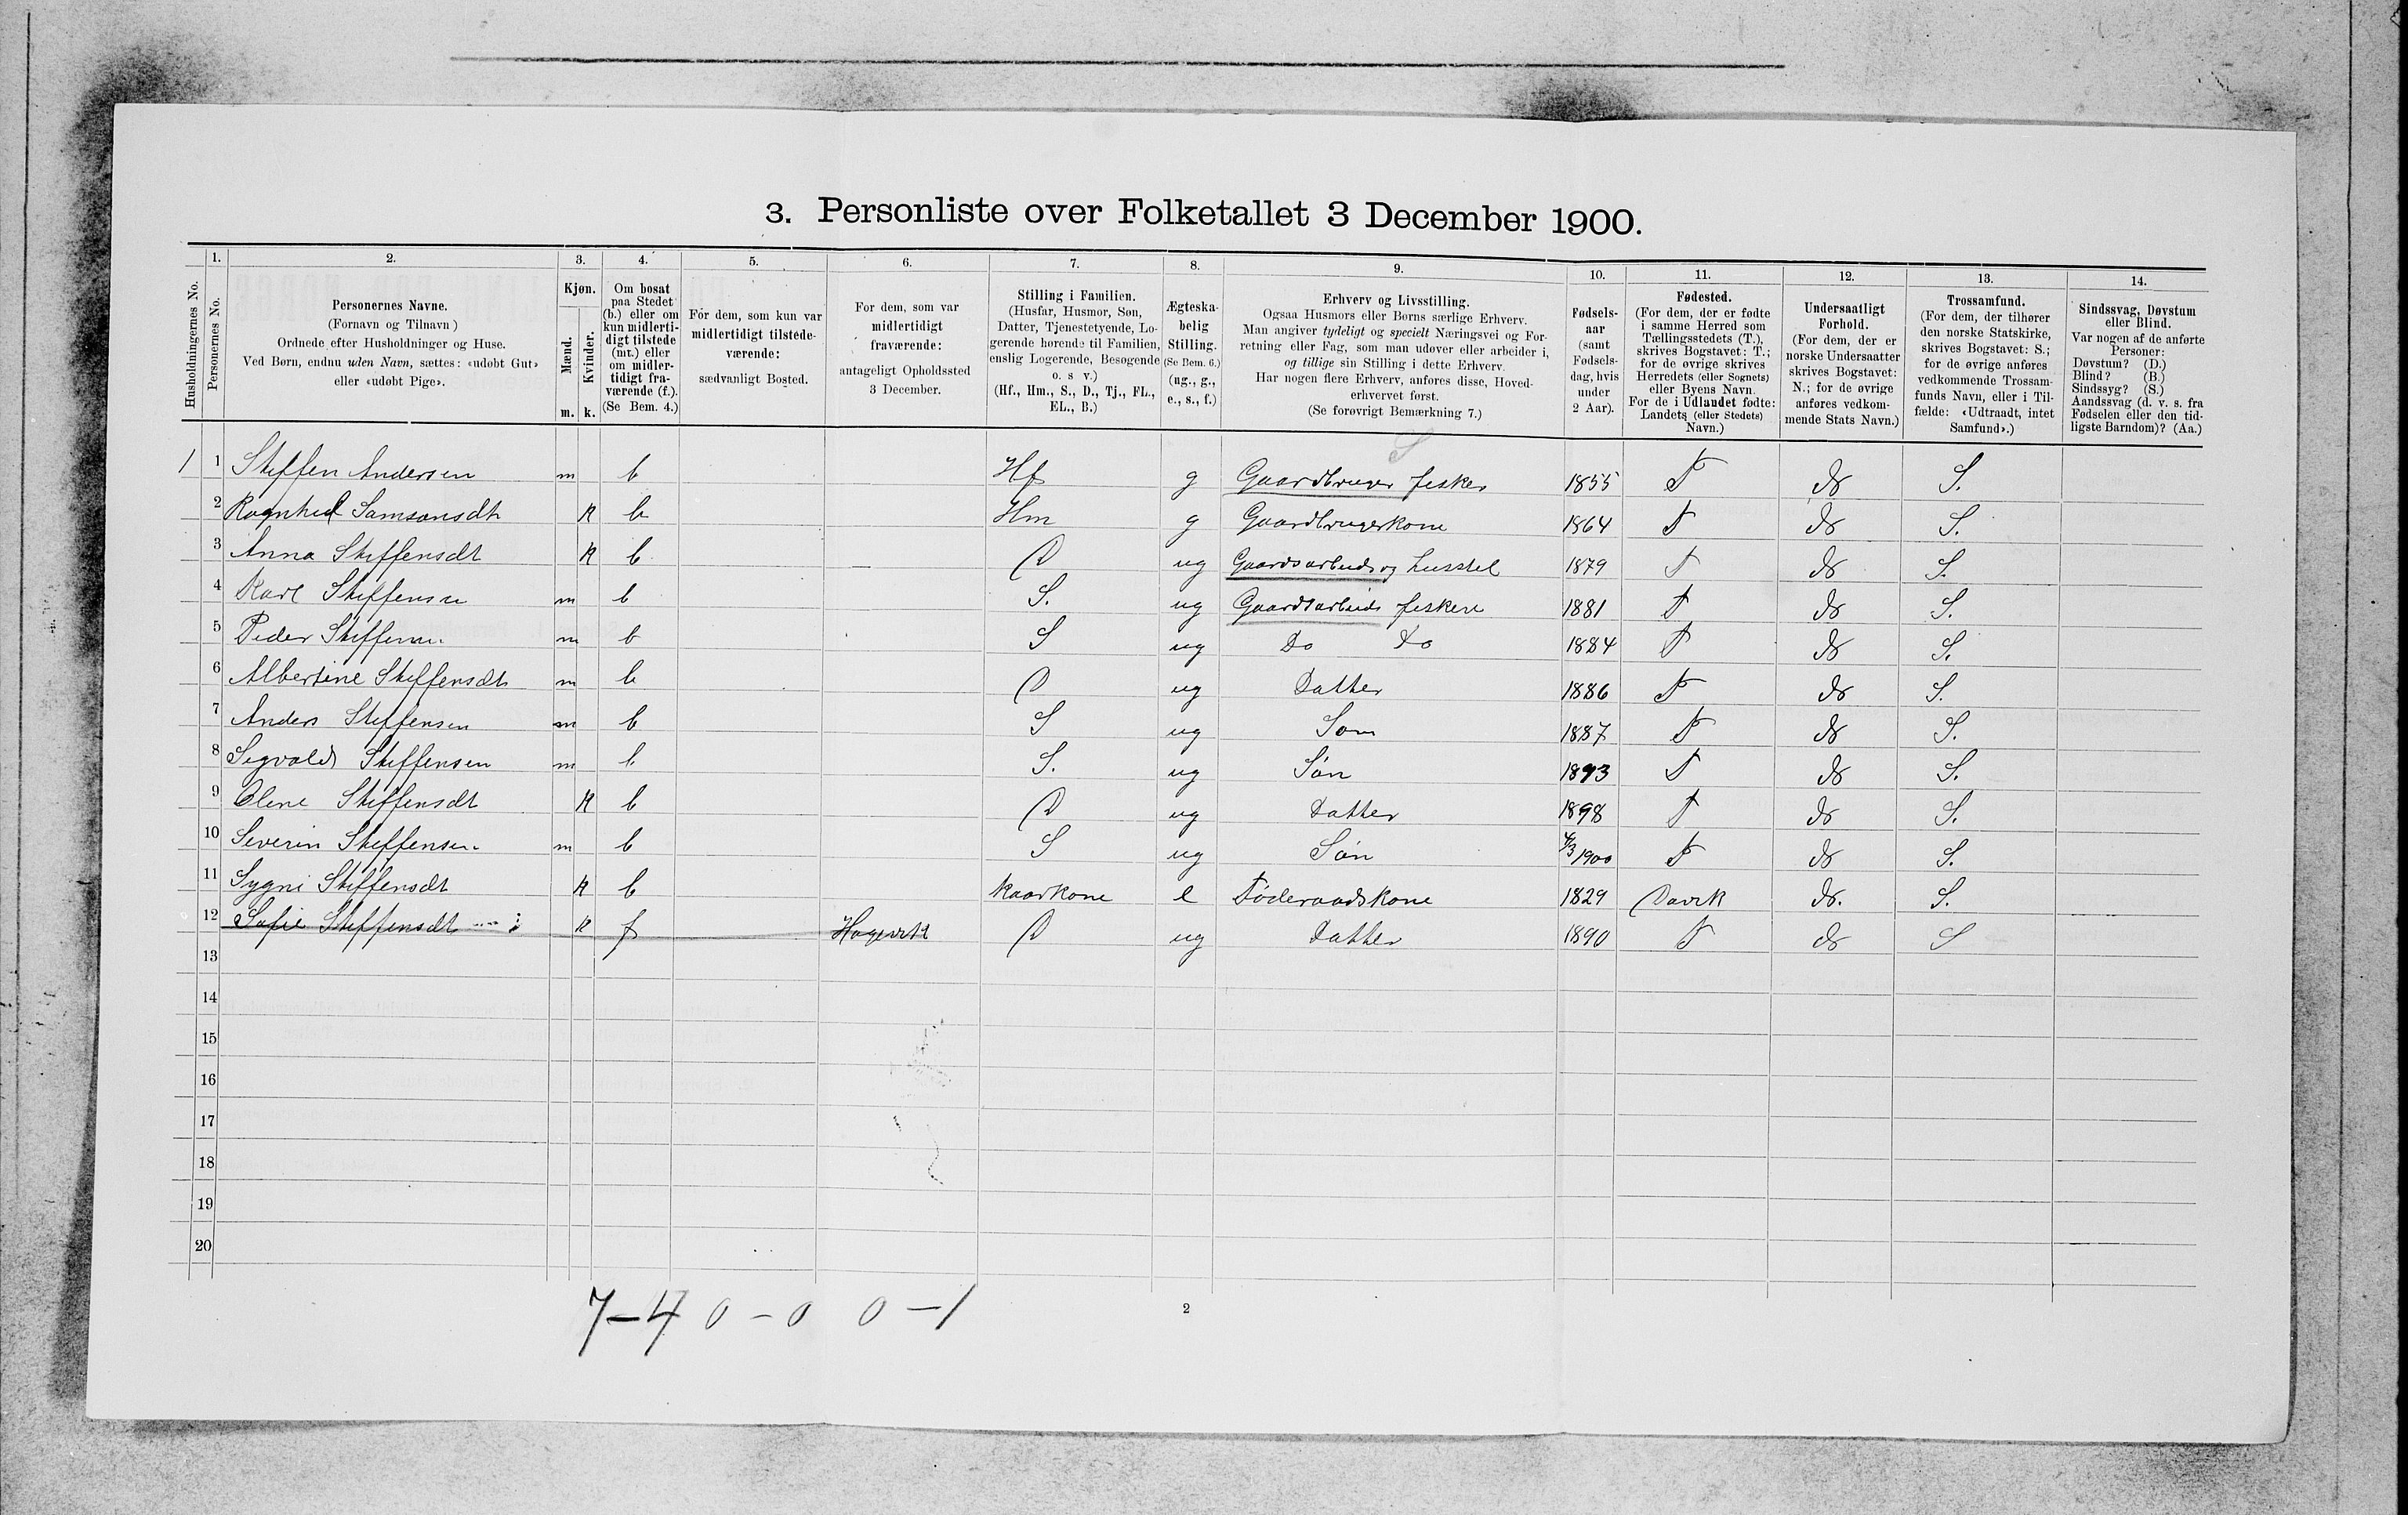 3. Personliste over Folketallet 3 December 1900.
Husholdningernes No.
1. Personernes No.
2. Personernes Navne.
(Fornavn og Tilnavn)
Ordnede efter Husholdninger og Huse.
Ved Børn, endnu uden Navn, sættes: «udøbt Gut»
eller «udøbt Pige».
3. Kjøn.
Mænd. m.
Kvinder. k.
4. Om bosat
paa Stedet
(b.) eller om
kun midlerti-
digt tilstede
(mt.) eller
om midler-
tidigt fra-
værende (f.).
(Se Bem. 4.)
5. For dem, som kun var
midlertidigt tilstede-
værende:
sædvanligt Bosted.
6. For dem, som var
midlertidigt
fraværende:
antageligt Opholdssted
3 December.
7. Stilling i Familien.
(Husfar, Husmor, Søn,
Datter, Tjenestetyende, Lo-
gerende hørende til Familien,
enslig Logerende, Besøgende
o. s v.)
(Hf., Hm., S., D., Tj., FL.,
EL., B.)
8. Ægteska-
belig
Stilling.
(Se Bem. 6.)
(ug., g.,
e., s., f.)
9. Erhverv og Livsstilling.
Ogsaa Husmors eller Børns særlige Erhverv.
Man angiver tydeligt og specielt Næringsvei og For-
retning eller Fag, som man udøver eller arbeider i,
og tillige sin Stilling i dette Erhverv.
Har nogen flere Erhverv, anføres disse, Hoved-
erhvervet først.
(Se forøvrigt Bemærkning 7.)
10. Fødsels-
aar
(samt
Fødsels-
dag, hvis
under
2 Aar).
11. Fødested.
(For dem, der er fødte
i samme Herred som
Tællingsstedets (T.),
skrives Bogstavet: T.;
for de øvrige skrives
Herredets (eller Sognets)
eller Byens Navn.
For de i Udlandet fødte:
Landets (eller Stedets)
Navn.)
12. Undersaatligt
Forhold.
(For dem, der er
norske Undersaatter
skrives Bogstavet:
N.; for de øvrige
anføres vedkom-
mende Stats Navn.)
13. Trossamfund.
(For dem, der tilhører
den norske Statskirke,
skrives Bogstavet: S.;
for de øvrige anføres
vedkommende Trossam-
funds Navn, eller i Til-
fælde: «Udtraadt, intet
Samfund».)
14. Sindssvag, Døvstum
eller Blind.
Var nogen af de anførte
Personer:
Døvstum? (D.)
Blind? (B.)
Sindssyg? (S.)
Aandssvag (d. v. s. fra
Fødselen eller den tid-
ligste Barndom)? (Aa.)
S
1 1 Steffen Andersen m b Hf g Gaardbruger fisker 1855 T N S.
2 Ragnhild Samsonsdt k b Hm g Gaardbrugerkone 1864 T N S.
3 Anna Steffensdt k b — D ug Gaardsarbeide og husstel 1879 T N S.
4 Karl Steffensen m b S. ug Gaardsarbeide fiskeri 1881 T N S.
5 Peder Steffensen m b S ug Do Do 1884 T N S.
6 Albertine Steffensdt m b D ug Datter 1886 T N S.
7 Anders Steffensen m b S ug Søn 1887 T N S.
8 Sigvald Steffensen m b S. ug Søn 1893 T N S.
9 Oline Steffensdt k b D ug Datter 1898 T N S.
10 Severin Steffensen m b S ug Søn 4/3 1900 T N S.
11 Sygni Steffensdt k b kaarkone e Føderaadskone 1829 Davik N. S.
12 Sofie Steffensdt k f Hagevik D ug Datter 1890 T N S
13
14
15
16
17
18
19
20
7-4 0-0 0-1
2